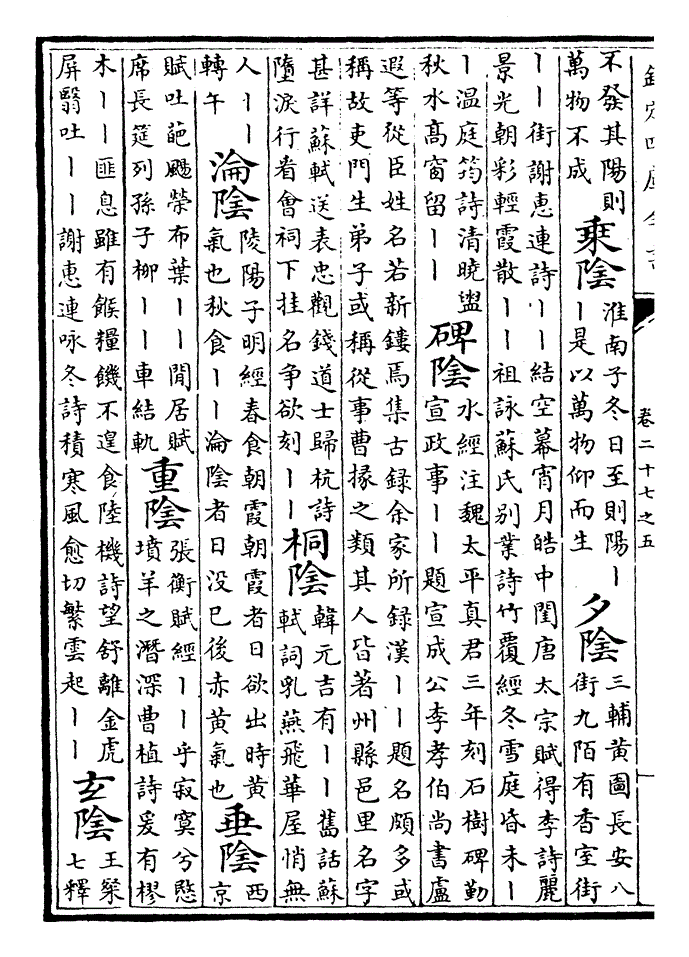 欽定四庫全書
卷二十七之五
不發其陽則
萬物不成
乗陰
淮南子冬日至則陽丨
丨是以萬物仰而生
夕陰
三輔黄圖長安八
街九陌有香室街
丨丨街謝惠連詩丨丨結空幕宵月皓中閨唐太宗賦得李詩麗
景光朝彩輕霞散丨丨祖詠蘇氏别業詩竹覆經冬雪庭昏未丨
丨温庭筠詩清曉盥
秋水髙窗留丨丨
碑陰
水經注魏太平真君三年刻石樹碑勤
宣政事丨丨題宣成公李孝伯尚書盧
遐等從臣姓名若新鏤焉集古録余家所録漢丨丨題名頗多或
稱故吏門生弟子或稱從事曹掾之類其人皆著州縣邑里名字
甚詳蘇軾送表忠觀錢道士歸杭詩
墮淚行看會祠下挂名争欲刻丨丨
桐陰
韓元吉有丨丨舊話蘇
軾詞乳燕飛華屋悄無
人丨丨
轉午
淪陰
陵陽子明經春食朝霞朝霞者日欲出時黄
氣也秋食丨丨淪陰者日没已後赤黄氣也
垂陰
西
京
賦吐葩颺榮布葉丨丨閒居賦
席長筵列孫子栁丨丨車結軌
重陰
張衡賦經丨丨乎寂寞兮愍
墳羊之潛深曹植詩爰有樛
木丨丨匪息雖有餱糧饑不遑食陸機詩望舒離金虎
屏翳吐丨丨謝惠連咏冬詩積寒風愈切繁雲起丨丨
玄陰
王粲
七釋